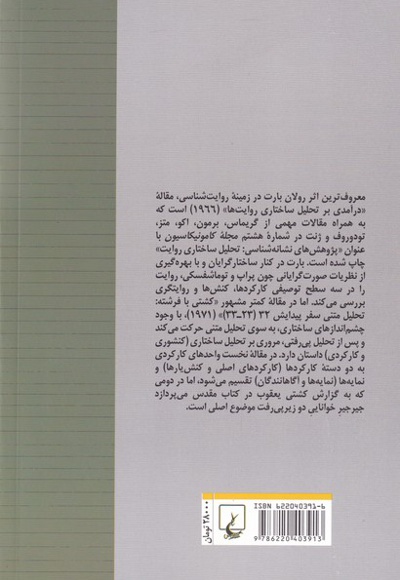 معروف‌ترین اثر رولان بارت در زمینهٔ روایت‌شناسی، مقالهٔ
«درآمدی بر تحلیل ساختاری روایت‌ها» (۱۹۶۶) است که
به همراه مقالات مهمی از گریماس، برمون، اکو، متز،
تودوروف و ژنت در شمارهٔ هشتم مجلهٔ کامونیکاسیون با
عنوان «پژوهش‌های نشانه‌شناسی: تحلیل ساختاری روایت»
چاپ شده است. بارت در کنار ساختارگرایان و با بهره‌گیری
از نظریات صورت‌گرایانی چون پراپ و توماشفسکی، روایت
را در سه سطح توصیفی کارکردها، کنش‌ها و روایتگری
بررسی می‌کند. اما در مقالهٔ کمتر مشهور «کشتی با فرشته:
تحلیل متنی سفر پیدایش ۳۲ (۲۳-۳۳)» (۱۹۷۱)، با وجود
چشم‌اندازهای ساختاری، به سوی تحلیل متنی حرکت می‌کند
و پس از تحلیل پی‌رفتی، مروری بر تحلیل ساختاری (کنشوری
و کارکردی) داستان دارد. در مقالهٔ نخست واحدهای کارکردی
به دو دستهٔ کارکردها (کارکردهای اصلی و کنش‌یارها) و
نمایه‌ها (نمایه‌ها و آگاهانندگان) تقسیم می‌شود، اما در دومی
که به گزارش کشتی یعقوب در کتاب مقدس می‌پردازد
جیرجیرِ خواناییِ دو زیرپی‌رفت موضوع اصلی است.
۲۸۰۰۰ تومان
ISBN ۶۲۲۰۴۰۳۹۱-۶
9 786220 403913